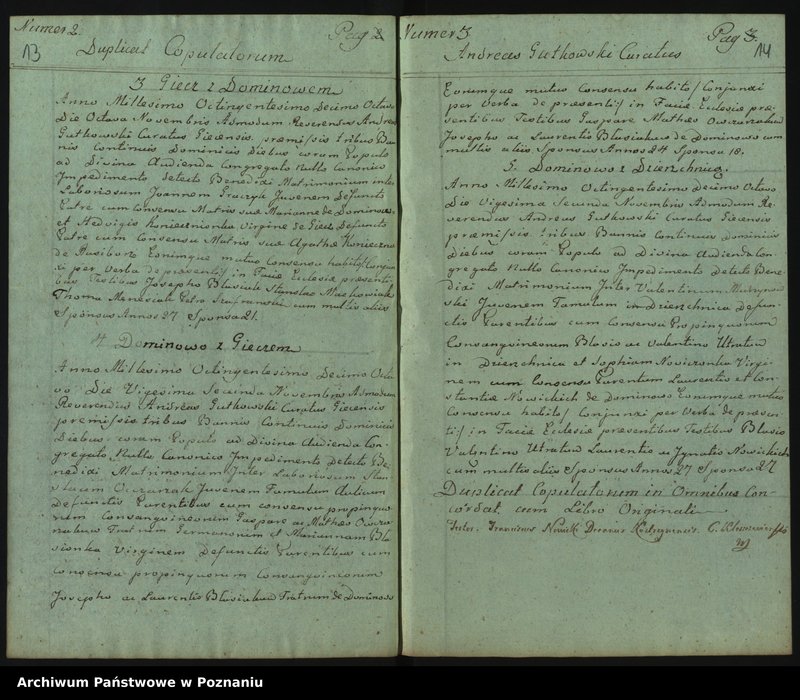 Numer 2.
Pag 2
13
Duplicat Copulatorum
3 Giecz z Dominowem
Anno Millesimo Octingentesimo Decimo Octavo
Die Octava Novembris Admodum Reverendus Andreas
Gutkowski Curatus Giecensis præmissis tribus Ban
nis Continuis Dominicis Diebus coram Populo
ad Divina Audienda Congregato Nullo Canonico
Impedimento detecto Benedixi Matrimonium inter
Laboriosum Joannem Graczyk Juvenem Defuncto
Patre cum Consensu Matris suæ Marianne de Dominowo
et Hedvigis Koniecznionka Virgine de Giecz Defuncto
Patre cum Consensu Matris suæ Agathæ Konieczna
de Eorumque mutuo Consensu habito/Conjun
xi per Verba de præsenti/ in Facie Ecclesiæ præsenti
bus Testibus Josepho Blasiak Stanislao Maćkowiak
Thoma Petro Szafranski cum multis aliis
Sponsus Annos 27 Sponsa 21.
4 Dominowo z Gieczem
Anno Millesimo Octingentesimo Decimo Octa
vo Die Vigesima Secunda Novembris Admodum
Reverendus Andreas Gutkowski Curatus Giecensis
premissis tribus Bannis Continuis Dominicis
Diebus coram Populo ad Divina Audienda Con-
gregato Nullo Canonico Impedimento Detecto Be-
nedixi Matrimonium Inter Laboriosum Stani
slaum Owczarzak Juvenem Famulum Aulicum
Defunctis Parentibus cum consensu propinquo
rum Consanguineorum Gaspare ac Matheo Owcza
rzaków Fratrum Germanorum et Mariannam Bla
sionka Virginem Defunctis Parentibus cum
Consensu propinquorum Consanguineorum
Josepho ac Laurentio Blasiaków Fratrum de Dominowo
Numer 3.
Pag 3.
14
Andreas Gutkowski Curatus
Eorumque mutuo Consensu habito/ Conjunxi
per Verba de præsenti/ in Facie Ecclesiæ præ-
sentibus Testibus Gaspare Matheo Owczarzaków
Josepho ac Laurentio Blasiaków de Dominowo cum
multis aliis Sponsus Annos 24 Sponsa 18.
5. Dominowo z Dzierznicą.
Anno Millesimo Octingentesimo Decimo Octavo
Die Vigesima Secunda Novembris Admodum Re-
verendus Andreas Gutkowski Curatus Giecensis
præmissis tribus Bannis Continuis Dominicis
Diebus coram Populo ad Divina Audienda Con-
gregato Nullo Canonico Impedimento Detecto Bene
dixi Matrimonium Inter Valentinum
ski Juvenem Famulum in Dzierznica Defun-
ctis Parentibus cum Consensu Propinquorum
Consanguineorum Blasio ac Valentino Utratów
in Dzierznica et Sophiam Nowiczonka Virgi-
nem cum Consensu Parentum Laurentii et Con
stantiæ Nowickich de Dominowo Eorumque mutuo
Consensu habito/ Conjunxi per Verba de præsen
ti/ in Facie Ecclesiæ præsentibus Testibus Blasio
Valentino Utratów Laurentio ac Ignatio Nowickich
cum multis aliis Sponsus Annos 27 Sponsa 27
Duplicat Copulatorum in Omnibus Con-
cordat cum Libro Originali
Franciscus Nowicki Decanus
Archiwum Państwowe w Poznaniu